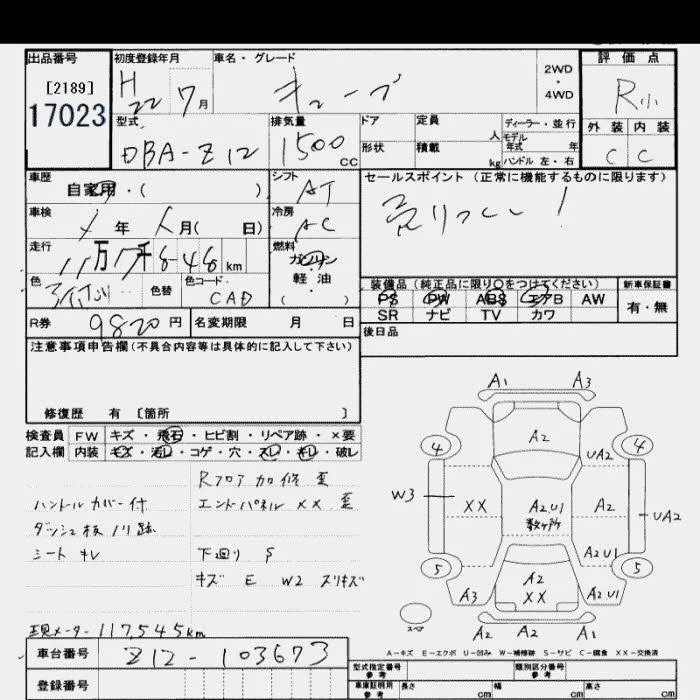 出品番号
[2189]
17023
初度登録年月
H22 7月
車名・グレード
キューブ
2WD
・
4WD
評価点
R小
外装 内装
C C
型式
DBA-Z12
排気量
1500 cc
ドア
形状
定員 人
積載 kg
ディーラー・並行
モデル
年式 年
ハンドル 左・右
車歴
自家用・( )
シフト
AT
セールスポイント (正常に機能するものに限ります)
売りつくし!
車検
年 月( 日)
冷房
AC
走行
11万7千848km
燃料
ガソリン
軽・油
( )
色
色替
色コード
CAD
装備品 (純正品に限り〇をつけてください)
PS PW ABS エアB AW
SR ナビ TV カワ
新車保証書
有・無
R券 9820円
名変期限 月 日
後日品
注意事項申告欄(不具合内容等は具体的に記入して下さい)
修復歴 有 [箇所 ]
検査員
記入欄
FW キズ・飛石・ヒビ割・リペア跡・×要
内装 キズ・汚レ・コゲ・穴・スレ・キレ・破レ
Rフロア加修歪
ハンドルカバー付
エンドパネル××歪
ダッシュ板ノリ跡
シートキレ
下回りS
キズ E W2 スリキズ
現メーター117,545km
A1 A3
4 A2 4
UA2
W3 XX A2.U1 数ヶ所 A2 UA2
A2U1
5 A2 XX 5
A3 A2U1
スペア
A2 A2 A1
A-キズ E-エクボ U-凹み W-補修跡 S-サビ C-腐食 XX-交換済
車台番号
Z12-103673
登録番号
型式指定番号
参考
類別区分番号
参考
車庫証明用
参考
長さ cm 幅 cm 高さ cm